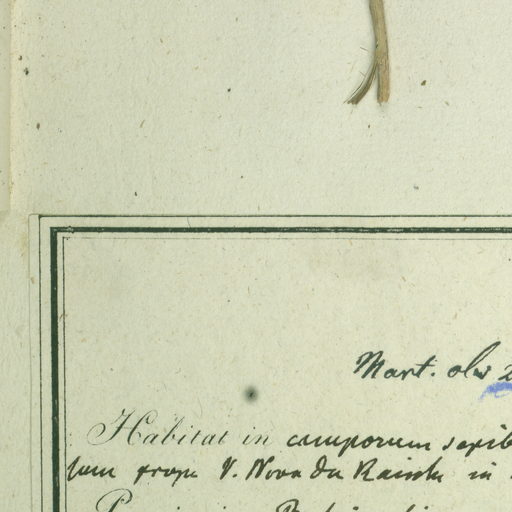 Mart. obs 2
Habitat in camporum sepib
tum prope V. Nova da Rainha in